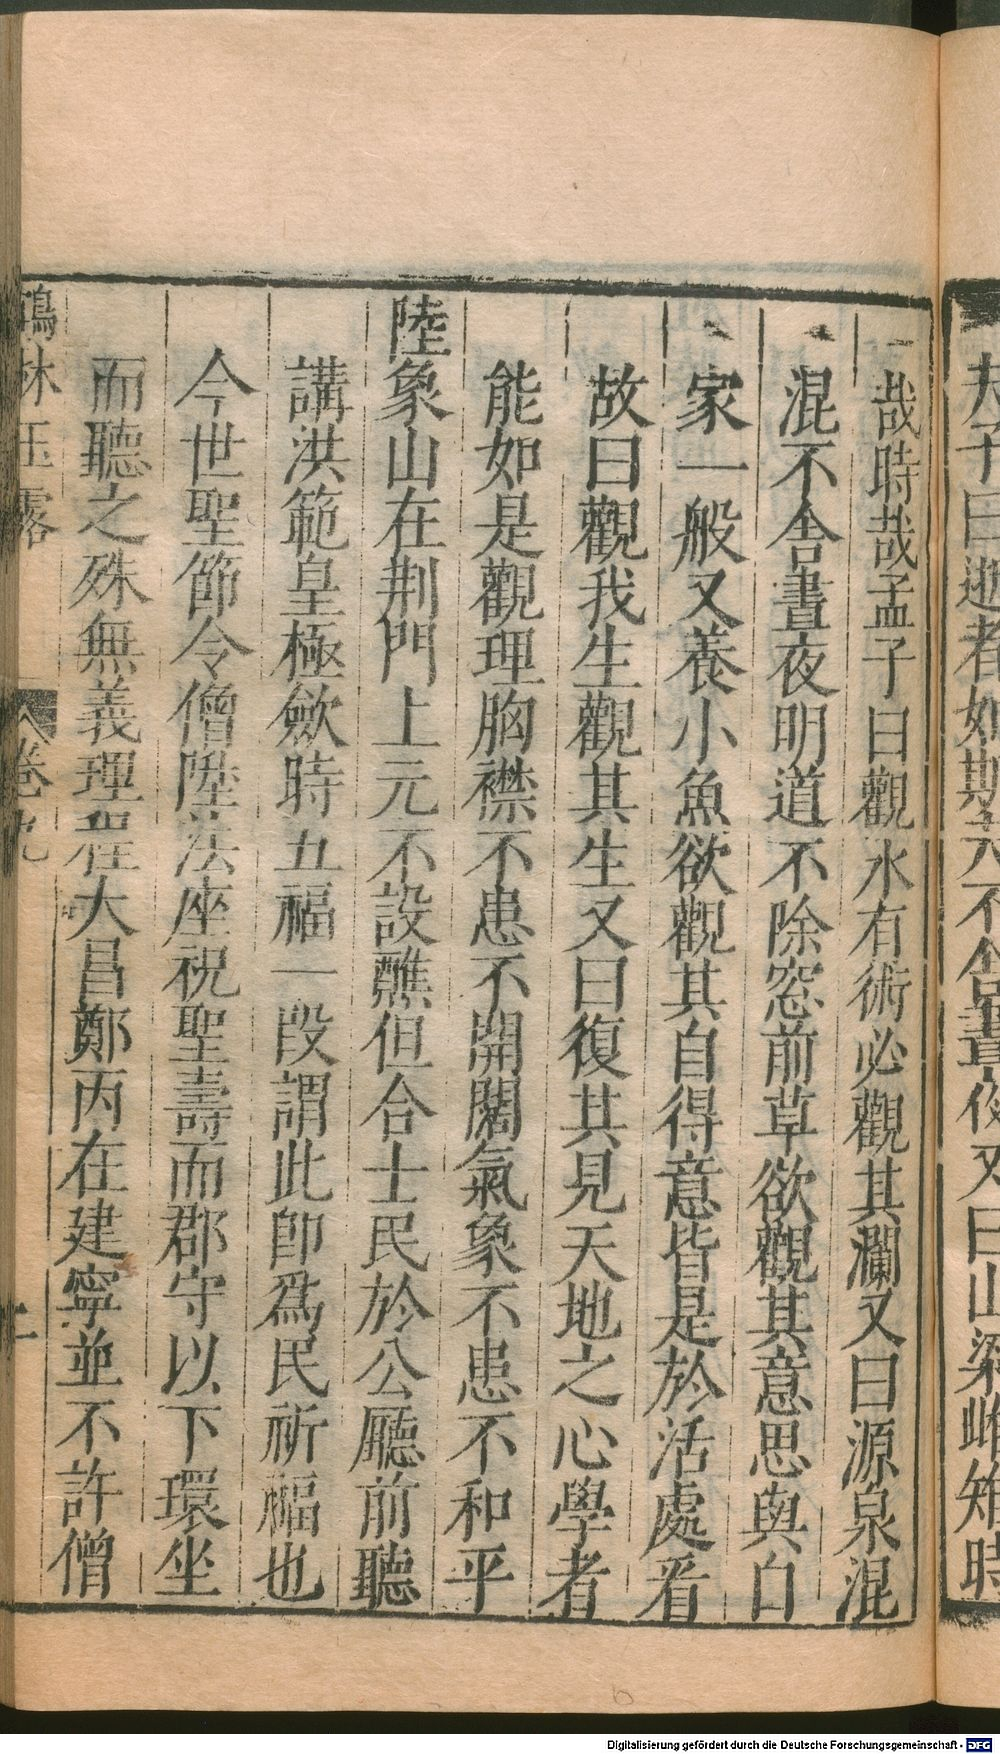 夫子曰逝者如斯夫不舍晝夜又曰山梁雌雉時
哉時哉孟子曰觀水有術必觀其瀾又曰源泉混
混不舍晝夜明道不除窓前草欲觀其意思與自
家一般又養小魚欲觀其自得意皆是於活處看
故曰觀我生觀其生又曰復其見天地之心學者
能如是觀理胸襟不患不開闊氣象不患不和平
陸象山在荆門上元不設醮但合士民於公廳前聽
講洪範皇極斂時五福一段謂此卽爲民祈福也
今世聖節令僧陞法座祝聖壽而郡守以下環坐
而聽之殊無義理程大昌鄭丙在建寧並不許僧
鶴林玉露
卷九
Digitalisierung gefördert durch die Deutsche Forschungsgemeinschaft - DFG